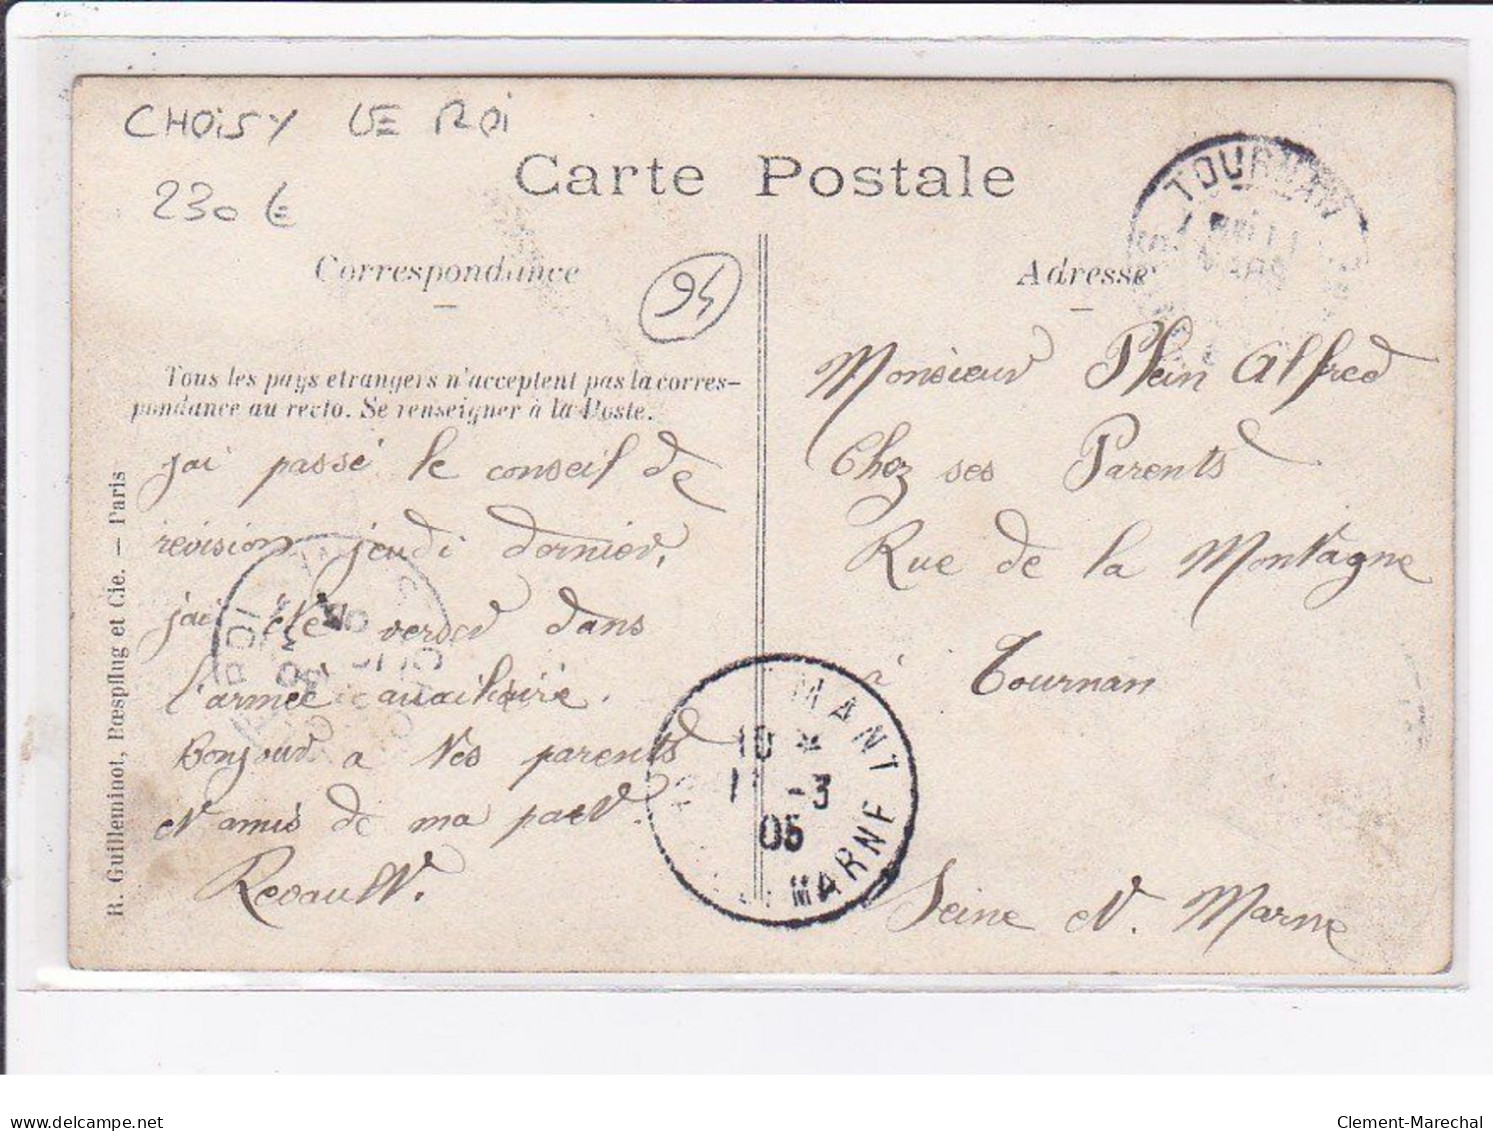 CHOISY LE ROI
230 €
Carte Postale
94
Correspondance
Adresse
Tous les pays etrangers n'acceptent pas la corres-
pondance au recto. Se renseigner à la Poste.
jai passé le conseil de
revision jeudi dernier,
jai été verser dans
l'armée auxiliaire.
Bonjour a tes parents
et amis de ma part.
Monsieur Alfred
Chez ses Parents
Rue de la Montagne
à Tournan
Seine et Marne
TOURNAN
MARS
MANT
10 *
11 -3
05
MARNE
R. Guilleminot, Bœspflug et Cie. — Paris
delcampe.net
Clement-Marechal